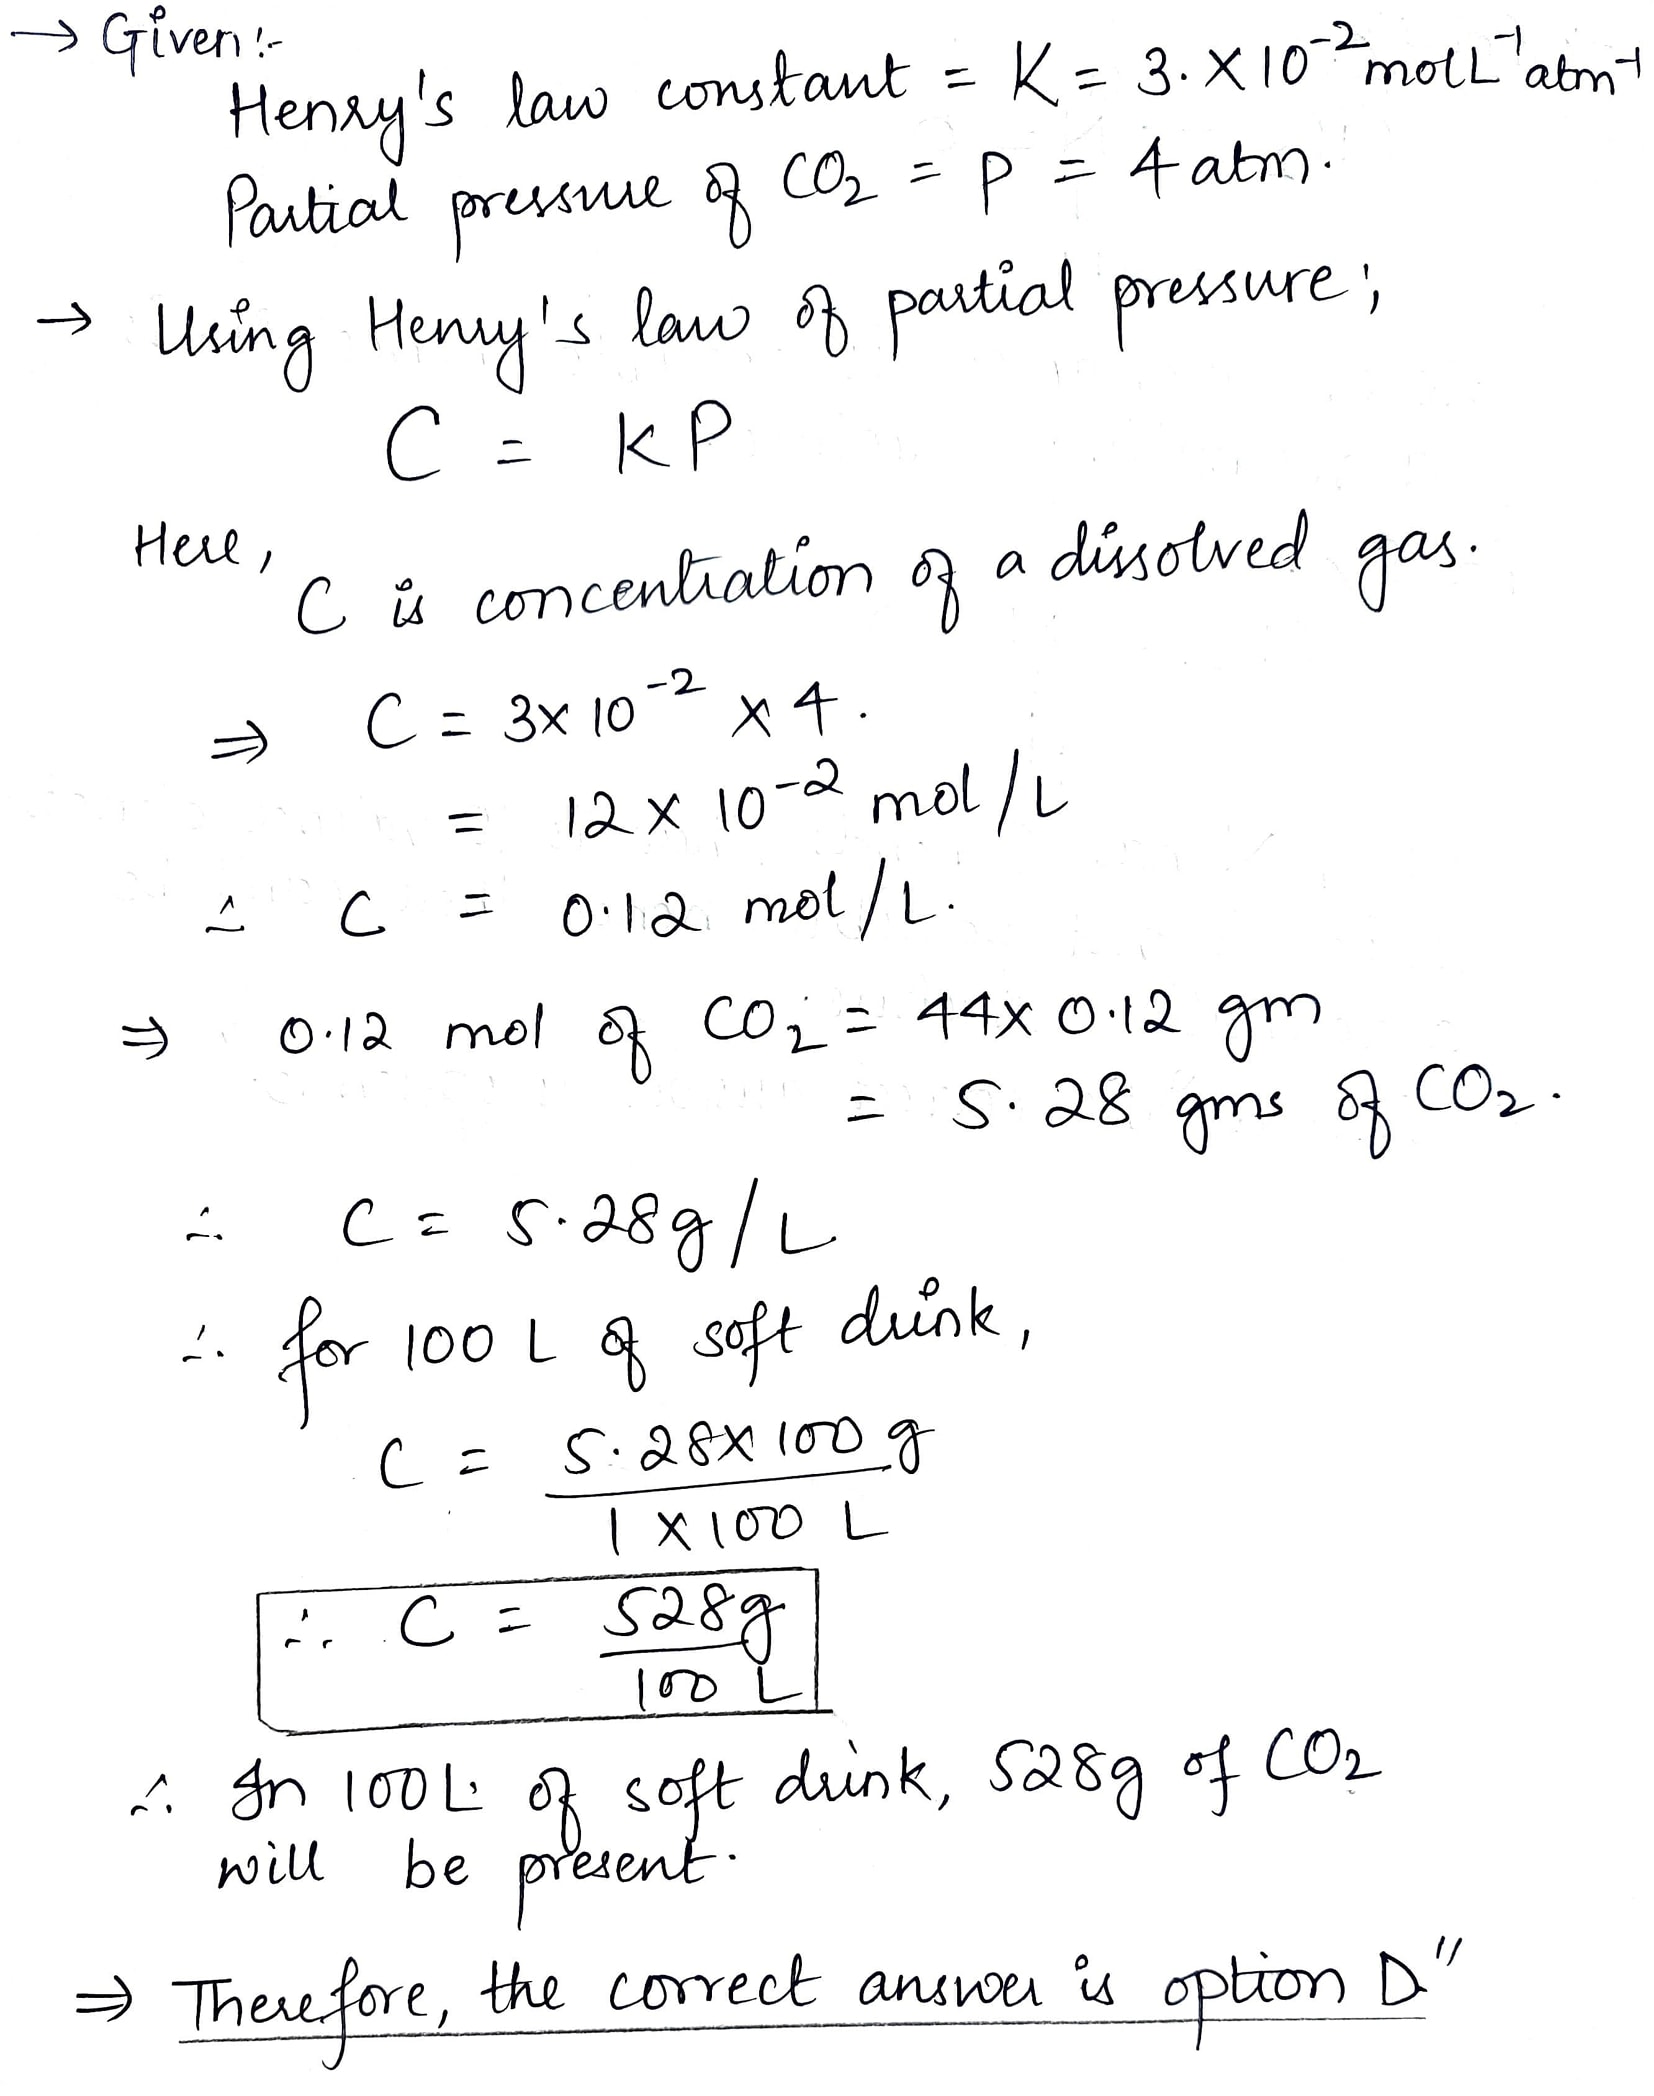 → Given:-
Henry's law constant = K = 3. × 10⁻² mol L⁻¹ atm⁻¹
Partial pressure of CO₂ = P = 4 atm.
→ Using Henry's law of partial pressure;
C = KP
Here,
C is concentration of a dissolved gas.
⇒ C = 3×10⁻² × 4.
= 12 × 10⁻² mol/L
∴ C = 0.12 mol/L.
⇒ 0.12 mol of CO₂ = 44× 0.12 gm
= 5.28 gms of CO₂.
∴ C = 5.28g/L
∴ for 100 L of soft drink,
C = 5.28×100 g
1 ×100 L
∴ C = 528g
100 L
∴ In 100L of soft drink, 528g of CO₂
will be present.
⇒ Therefore, the correct answer is option D"